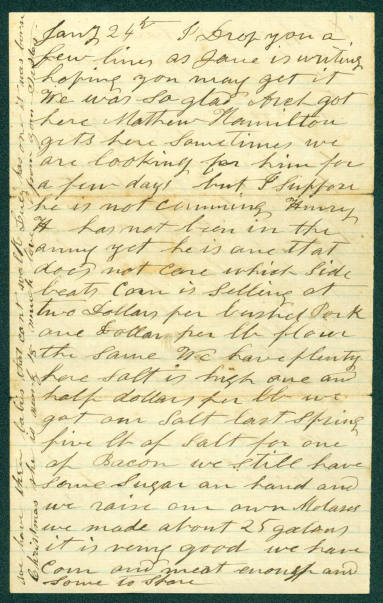 Jany 24th I Drop you a
few lines as Jane is writing
hoping you may get it
We was so glad Arch got
here Mathew Hamilton
gits here Sometimes we
are looking for him for
a few days but I Suppose
he is not cumming Henry
H has not been in the
army yet he is one that
does not care which Side
beats Corn is Selling at
two Dollars per bushel Pork
one Dollar per lb flour
the Same We have plenty
here Salt is high one and
half dollars per lb we
got our Salt last Spring
five lb of Salt for one
of Bacon we still have
Some Sugar on hand and
we raise our own Molases
we made about 25 galons
it is verry good we have
Corn and meat enough and
Some to Spare
we have three babies that cant walk has one it was born
Christmas she is much